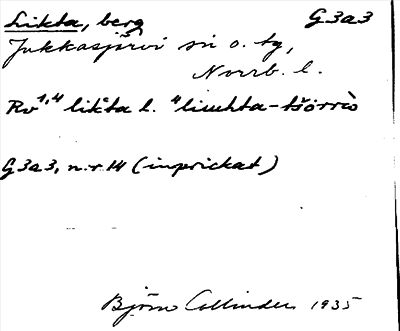 Likta, berg G3a3
Jukkasjärvi sn o. tg,
Norrb. l.
Rv 1,4 likta l. 4 liuhta-tšorrò
G3a3, n:r 14 (inprickat)
Björn Collinder 1935